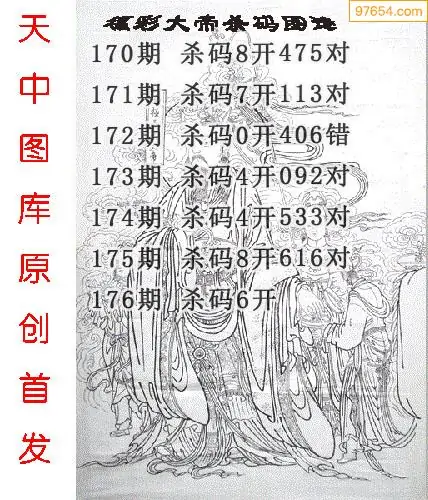 97654.com
福彩大帝杀码图迷
170期 杀码8开475对
171期 杀码7开113对
172期 杀码0开406错
173期 杀码4开092对
174期 杀码4开533对
175期 杀码8开616对
176期 杀码6开
天中图库原创首发